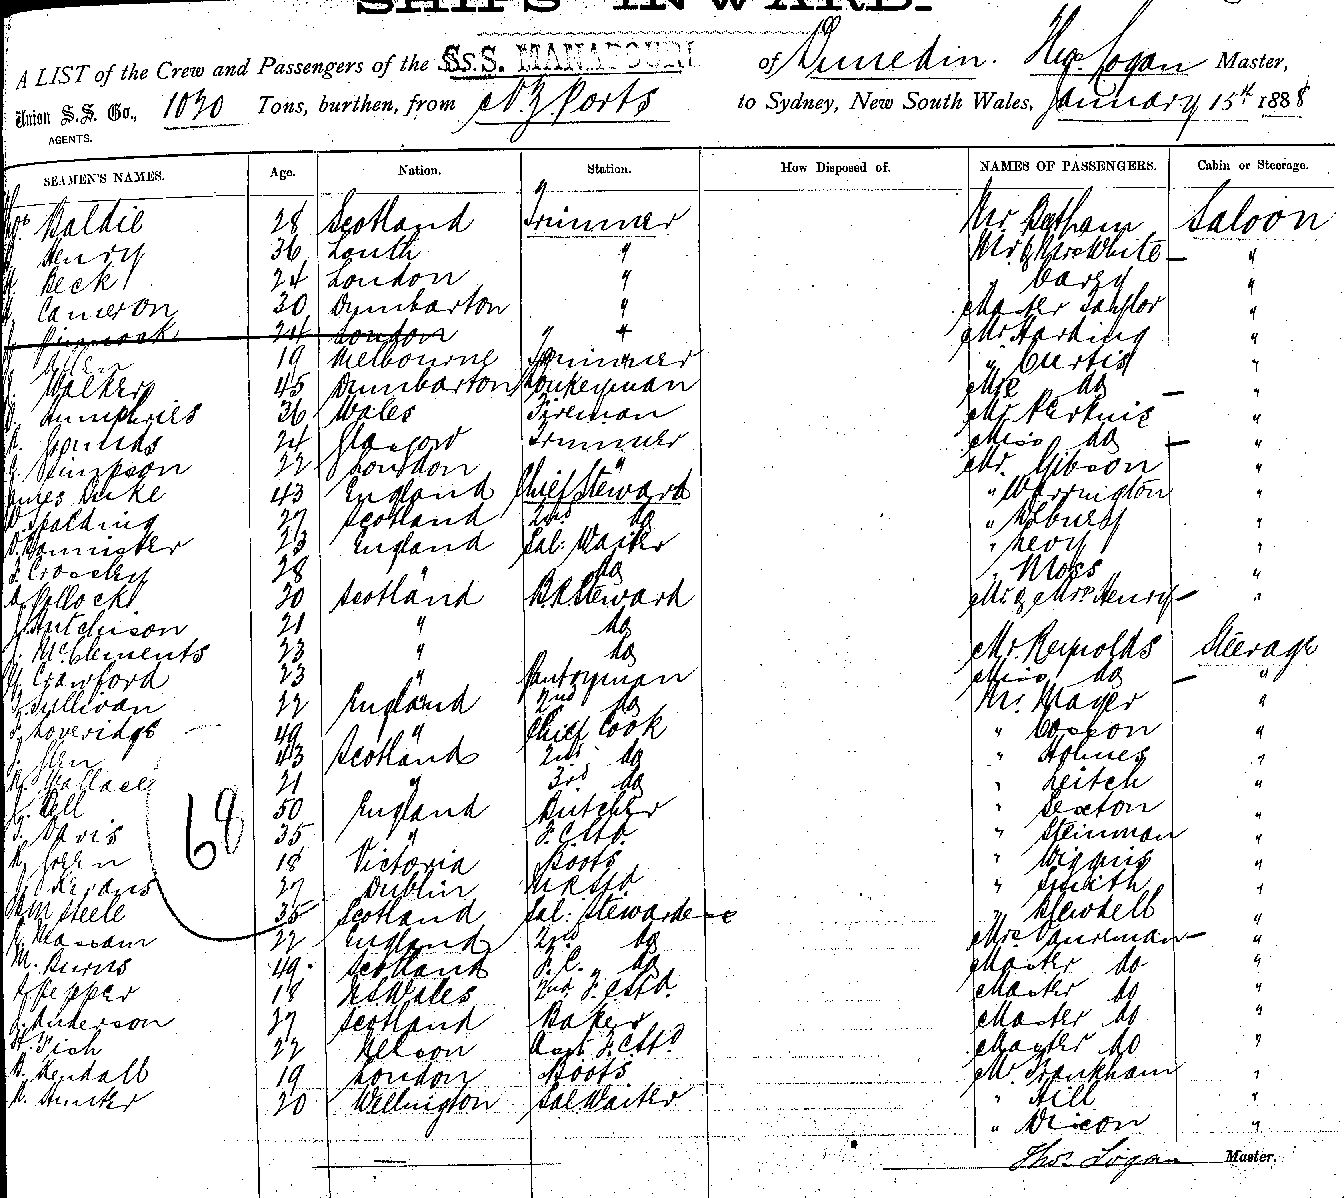 SHIPS INWARD.
A LIST of the Crew and Passengers of the S.S. MANAPOURI of Dunedin. Thos. Logan Master,
Union S.S. Co., 1030 Tons, burthen, from N Z Ports to Sydney, New South Wales, January 15th 1888
AGENTS.
SEAMEN'S NAMES. Age. Nation. Station. How Disposed of. NAMES OF PASSENGERS. Cabin or Steerage.
Baldie 28 Scotland Trimmer Mr. Saloon
Henry 36 Louth " Mr & Mrs White "
Beck 24 London " Carey "
Cameron 30 Dumbarton " Master Taylor "
24 London " Mr Harding "
19 Melbourne Trimmer " Curtis "
Walker 45 Dumbarton Donkeyman Mrs do "
Humphries 36 Wales Fireman Mr. "
24 Glasgow Trimmer Miss do "
Simpson 22 London " Mr. Gibson "
James Duke 43 England Chief Steward " Warrington "
W. Spalding 27 Scotland 2nd do " "
Bannister 23 England Sal: Waiter " Levy "
Crossley 28 " do " Moss "
Pollock 20 Scotland Steward Mr & Mrs Henry "
J. Hutchison 21 " do
J. McClements 23 " do Mr. Reynolds Steerage
Crawford 23 " Pantryman Miss do "
Sullivan 22 England 2nd do Mr. Mager "
Loveridge 49 " Chief Cook " Cosson "
J. Glen 43 Scotland 2nd do " Holmes "
R. Wallace 21 " 3rd do " Leitch "
Bell 50 England Butcher " Sexton "
Davis 35 " " Steinman "
Green 18 Victoria Boots " Wiggins "
27 Dublin " Smith "
Steele 35 Scotland Sal: Stewardess " Blewdell "
22 England 2nd do Mrs "
M. Burns 49 Scotland F.C. do Master do "
Pepper 18 N S Wales 2nd F.C. Std. Master do "
Anderson 27 Scotland Baker Master do "
Fish 22 Nelson Asst F.C. Std Master do "
Kendall 19 London Boots Mr. Frankham "
Hunter 20 Wellington Sal Waiter " Hill "
" Dixon "
68
Thos. Logan Master.